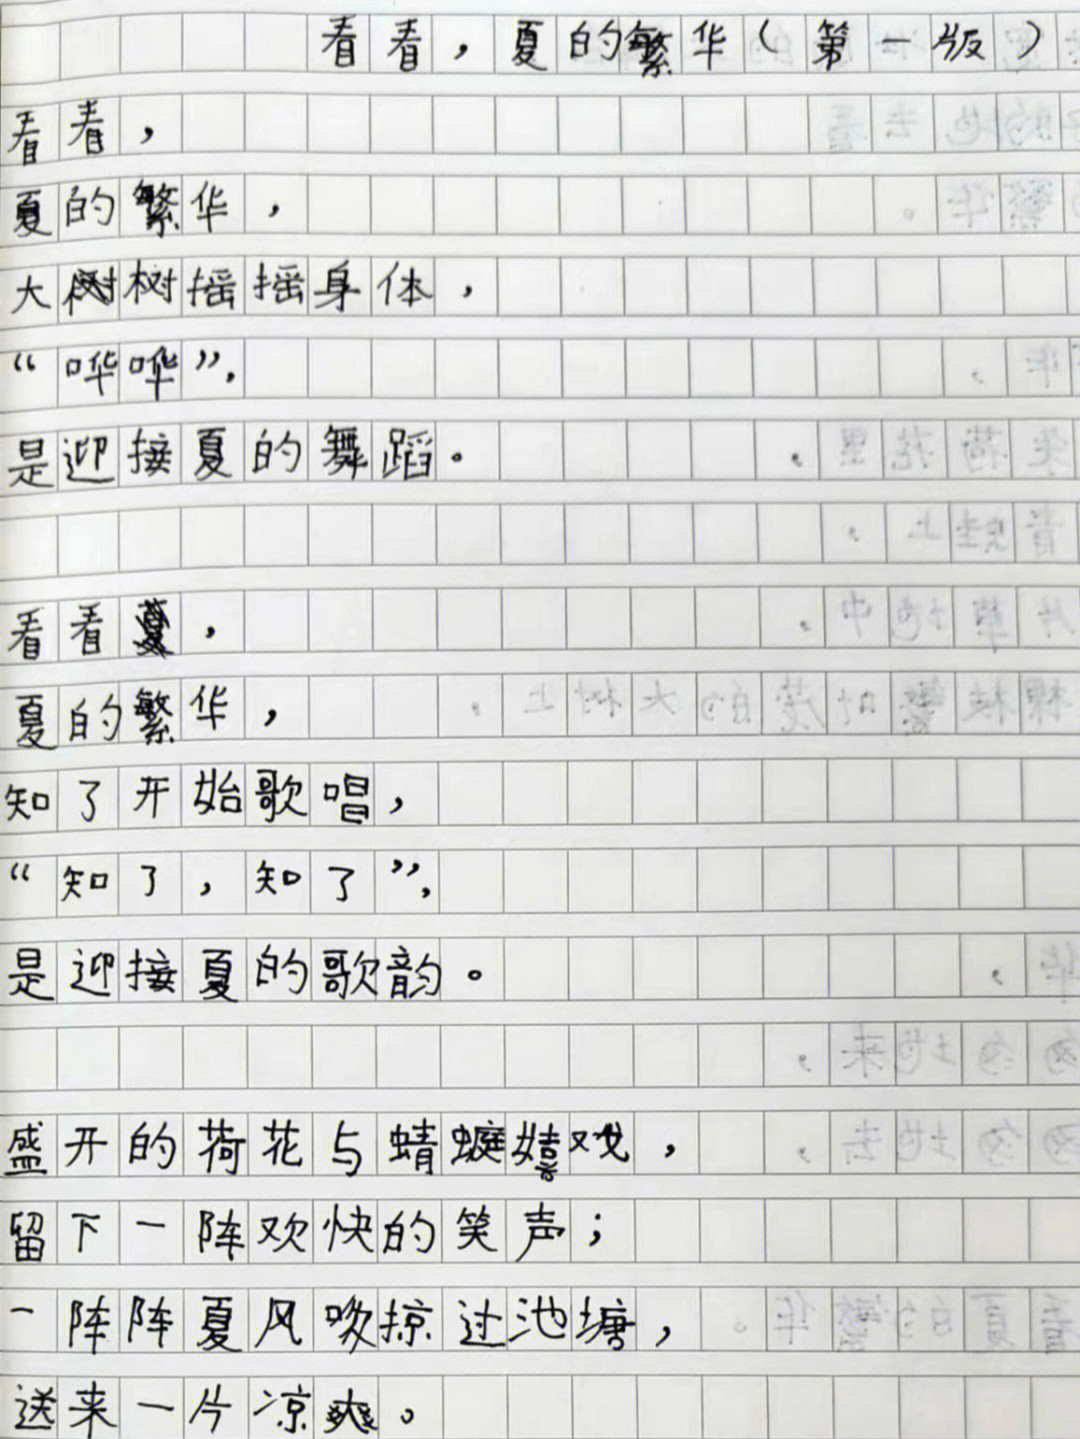 看看，夏的繁华（第一版）
看看，
夏的繁华，
大树树摇摇身体，
“哗哗”，
是迎接夏的舞蹈。
看看夏，
夏的繁华，
知了开始歌唱，
“知了，知了”，
是迎接夏的歌韵。
盛开的荷花与蜻蜓嬉戏，
留下一阵欢快的笑声；
一阵阵夏风吹掠过池塘，
送来一片凉爽。